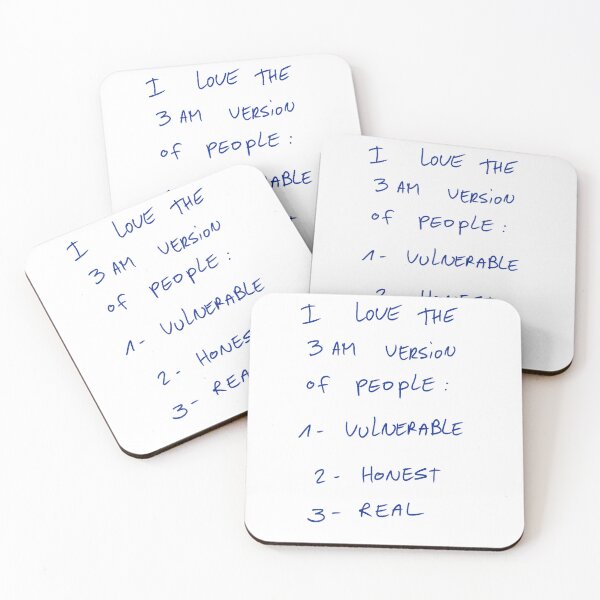 I LOVE THE
3 AM VERSION
of PEOPLE:
ABLE
I LOVE THE
3 AM VERSION
of PEOPLE:
1- VULNERABLE
I LOVE THE
3 AM VERSION
of PEOPLE:
1- VULNERABLE
2- HONES
3- REA
I LOVE THE
3 AM VERSION
of PEOPLE:
1- VULNERABLE
2- HONEST
3- REAL